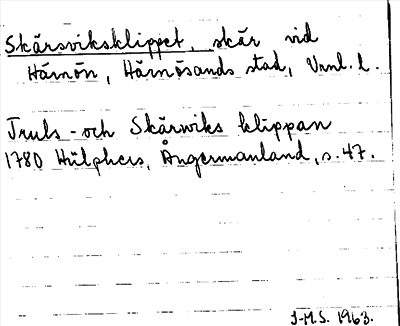 Skärsviksklippet, skär vid
Härnön, Härnösands stad, Vnl. l.
Truls- och Skärwiks klippan
1780 Hülphers, Ångermanland, s. 47.
J-M.S. 1963.